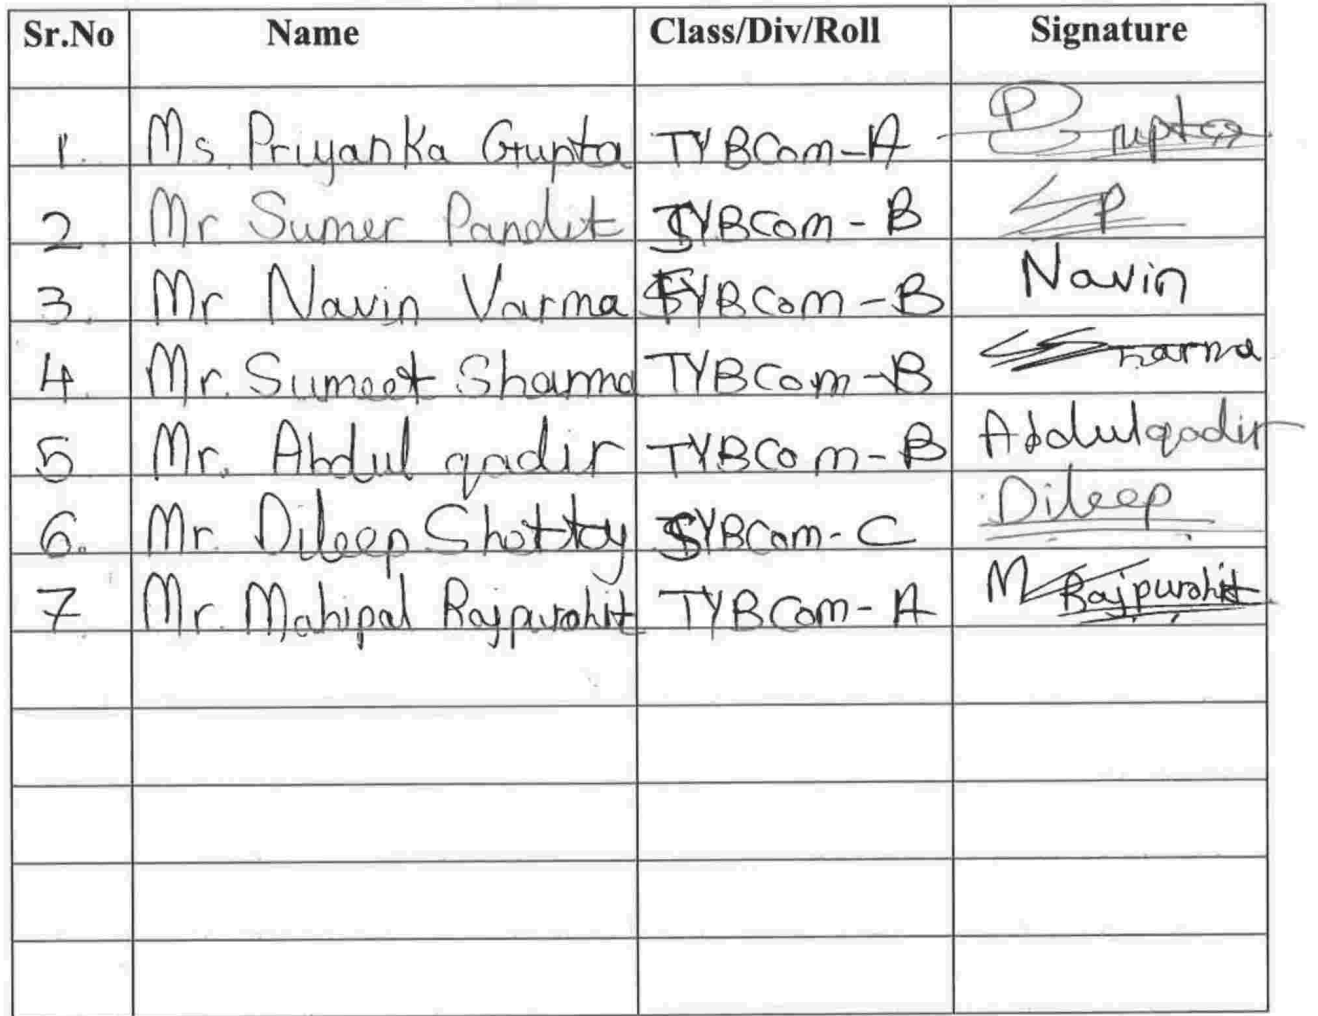 Sr.No Name Class/Div/Roll Signature
1. Ms. Priyanka Gupta TYBCom-A PGupta
2. Mr Sumer Pandit SYBCom-B SP
3. Mr Navin Varma FYBCom-B Navin
4. Mr. Sumeet Sharma TYBCom-B SSharma
5 Mr. Abdul qadir TYBCom-B Abdulqadir
6. Mr. Dileep Shettty SYBCom-C Dileep
7 Mr. Mahipal Rajpurohit TYBCom-A M Rajpurohit